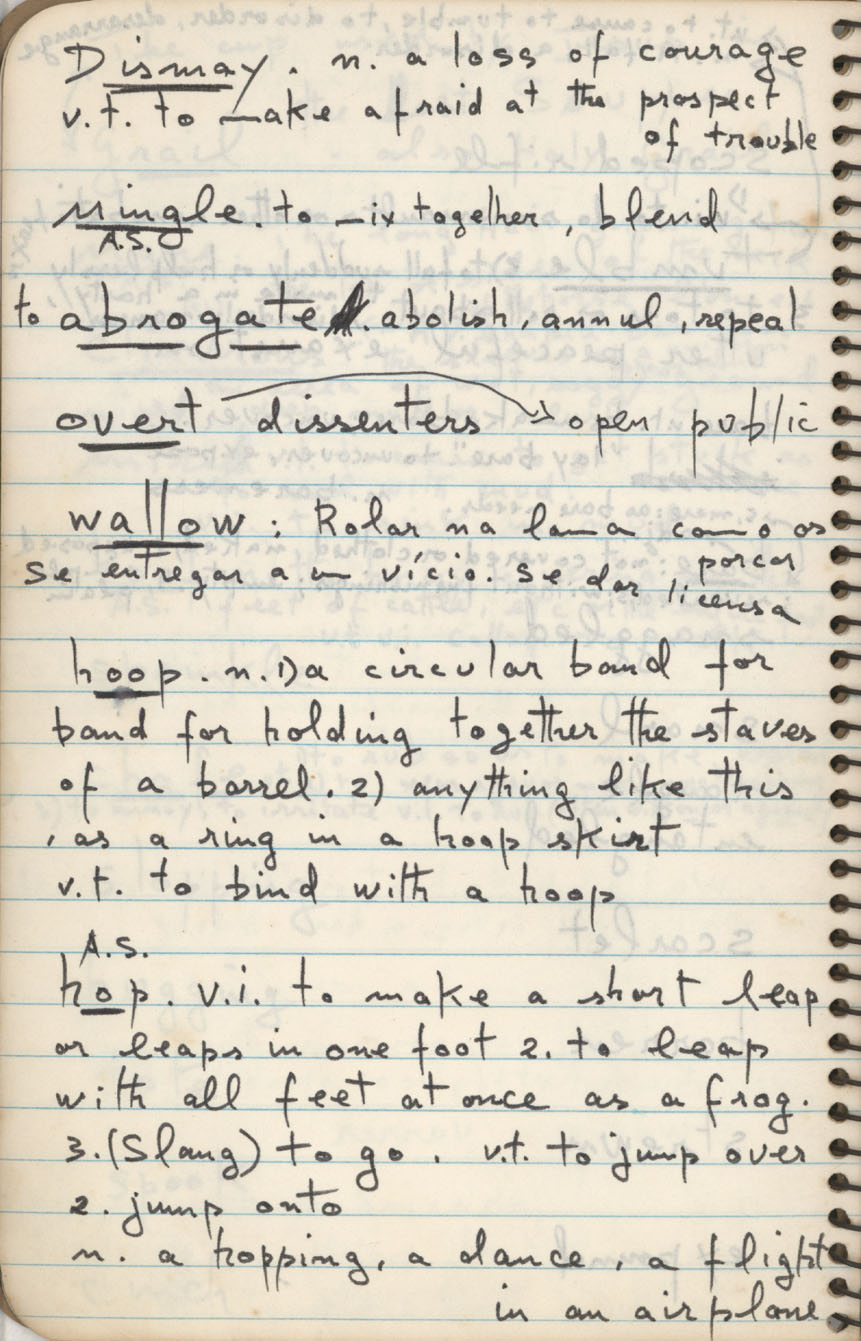 Dismay. n. a loss of courage
v.t. to make afraid at the prospect
of trouble
Mingle. to mix together, blend
A.S.
to abrogate. abolish, annul, repeal
overt dissenters → open public
wallow: Rolar na lama como os
porcos
se entregar a um vício. se dar licensa
hoop. n. 1) a circular band for
band for holding together the staves
of a barrel. 2) anything like this
, as a ring in a hoop skirt
v.t. to bind with a hoop
A.S.
hop. v.i. to make a short leap
or leaps in one foot 2. to leap
with all feet at once as a frog.
3. (Slang) to go. v.t. to jump over
2. jump onto
n. a hopping, a dance, a flight
in an airplane